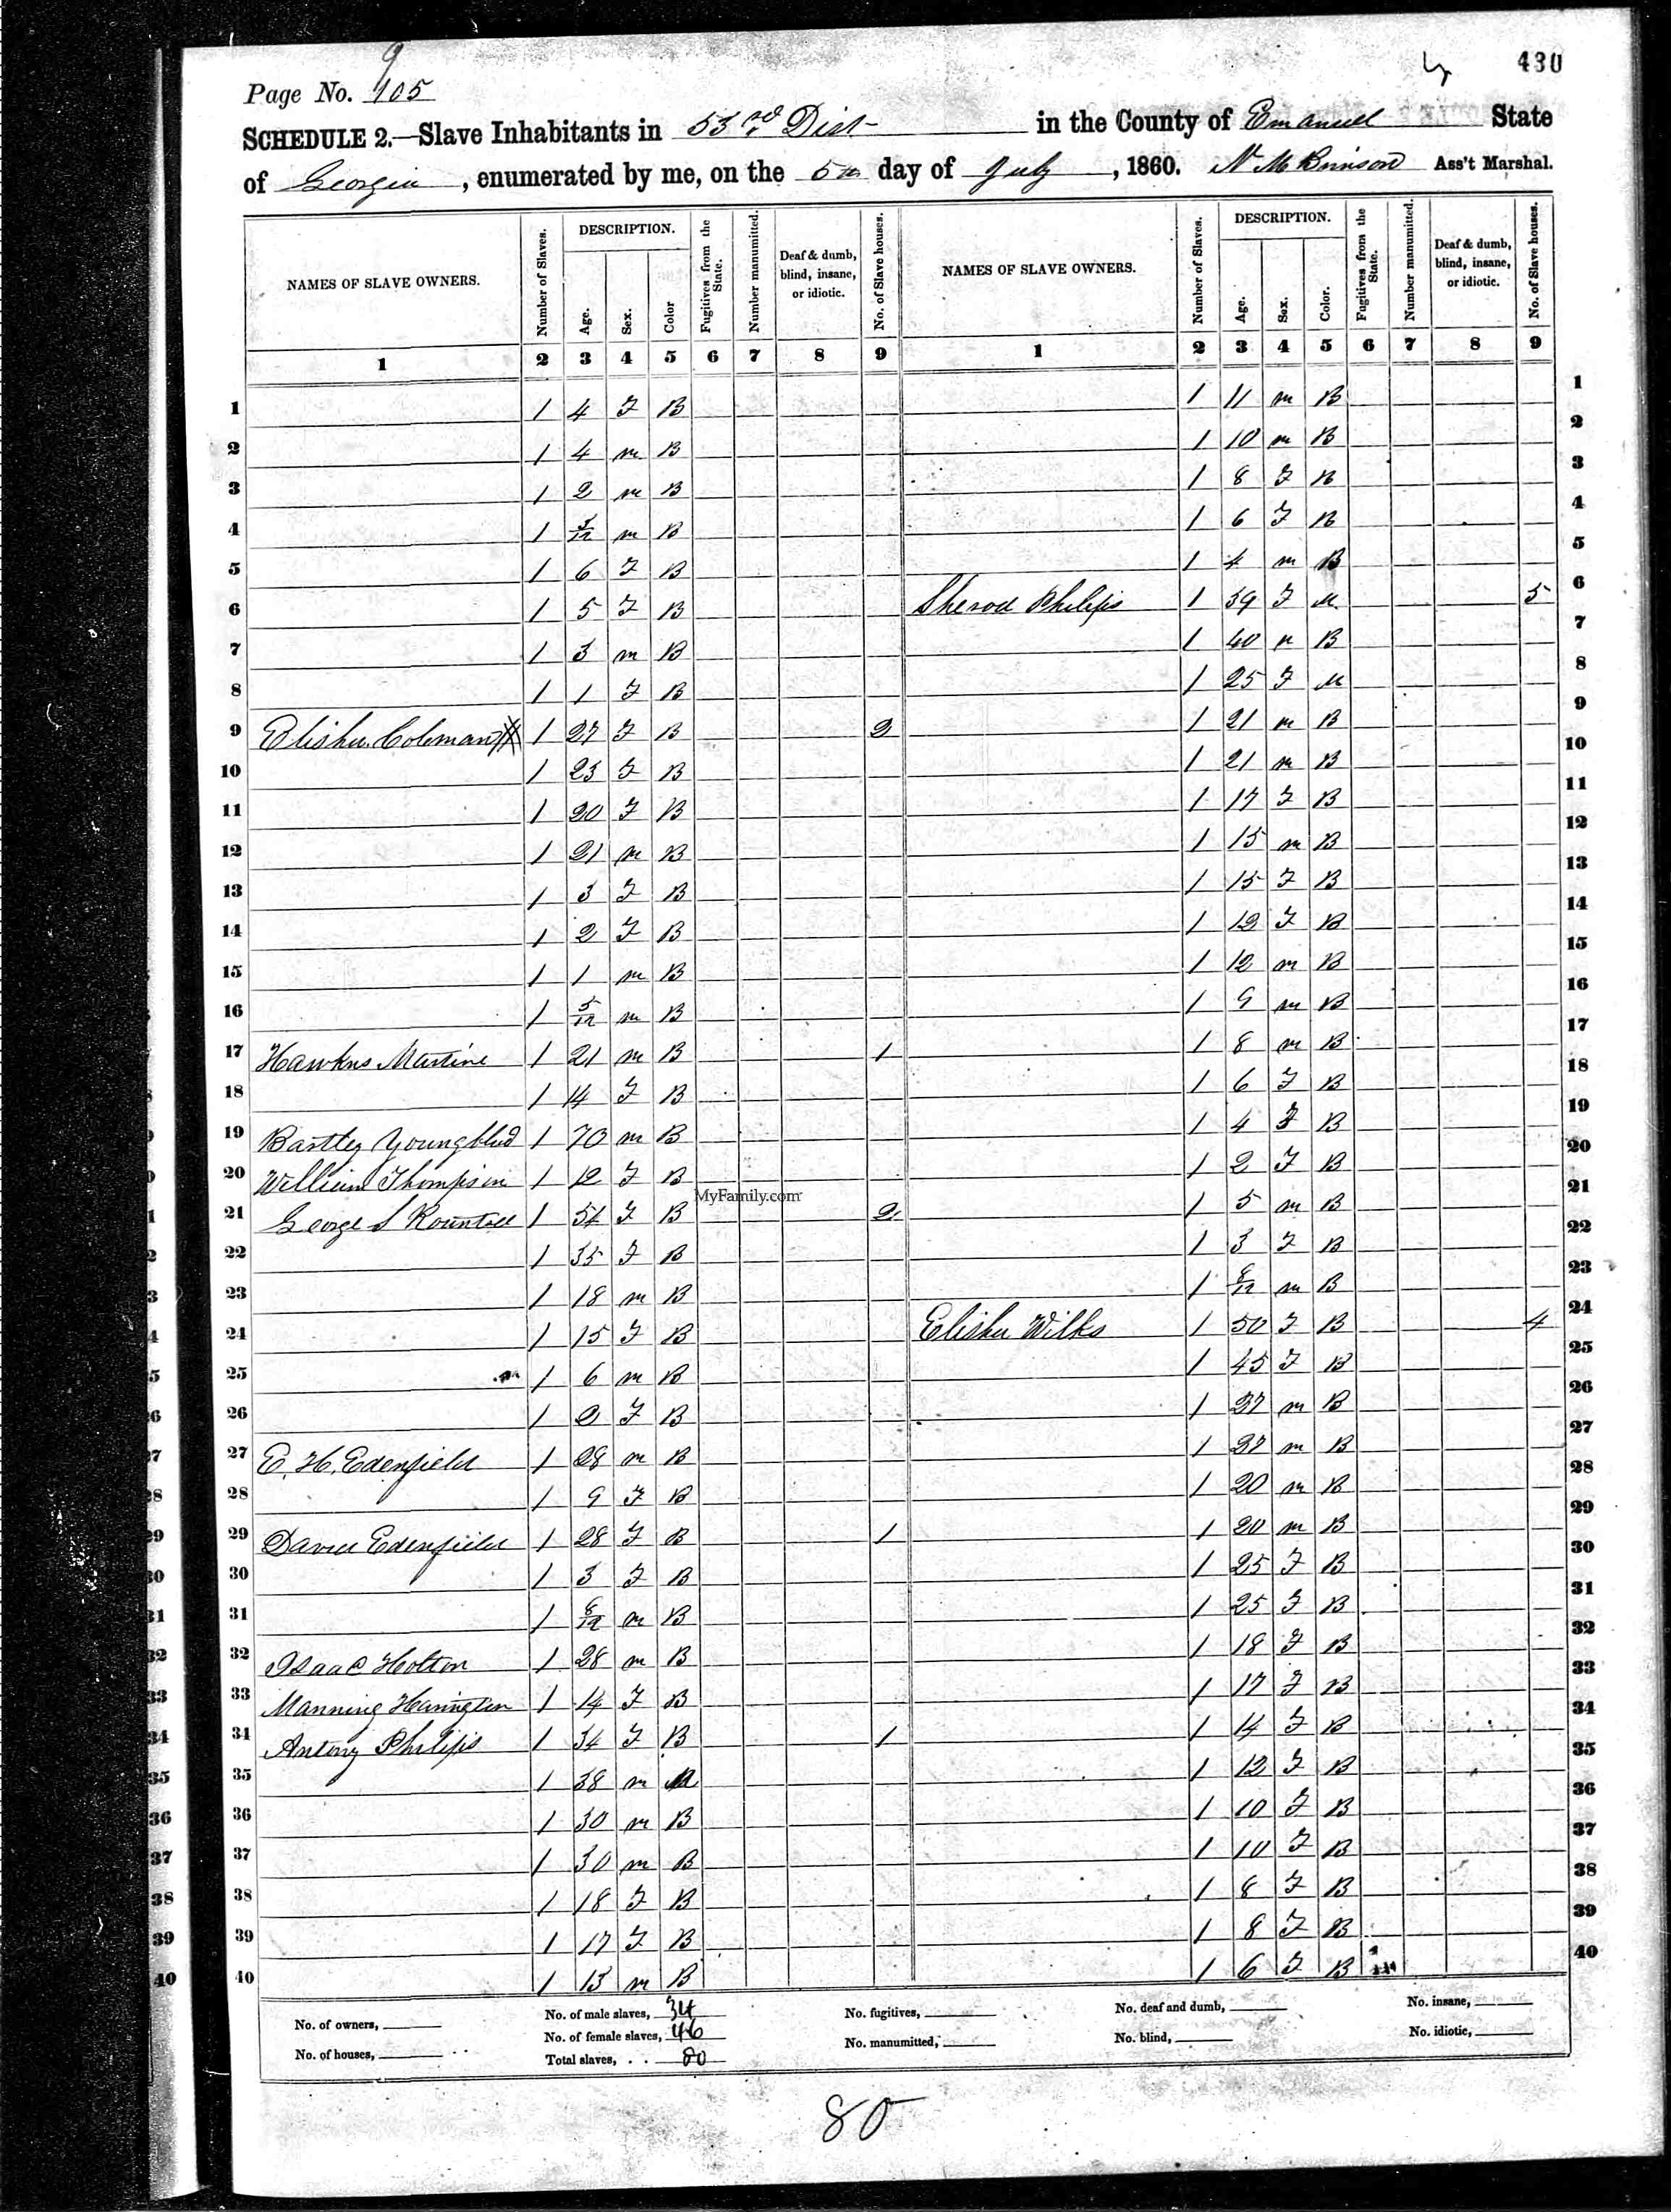 9
Page No. 105
4 430
SCHEDULE 2.—Slave Inhabitants in 53rd Dist in the County of Emanuel State
of Georgia, enumerated by me, on the 5th day of July, 1860. N M Brinson Ass't Marshal.
NAMES OF SLAVE OWNERS. Number of Slaves. DESCRIPTION. Age. Sex. Color Fugitives from the State. Number manumitted. Deaf & dumb, blind, insane, or idiotic. No. of Slave houses.
1 2 3 4 5 6 7 8 9
1 1 4 F B
2 1 4 m B
3 1 2 m B
4 1 3/12 m B
5 1 6 F B
6 1 5 F B
7 1 3 m B
8 1 1 F B
9 Elisha Coleman 1 27 F B 2
10 1 23 F B
11 1 20 F B
12 1 21 m B
13 1 3 F B
14 1 2 F B
15 1 1 m B
16 1 5/12 m B
17 Hawkns Martine 1 21 m B 1
18 1 14 F B
19 Bartley Youngblud 1 70 m B
20 William Thompson 1 12 F B
MyFamily.com
21 George S Rountree 1 54 F B 2
22 1 35 F B
23 1 18 m B
24 1 15 F B
25 1 6 m B
26 1 2 F B
27 E. H. Edenfield 1 28 m B
28 1 9 F B
29 David Edenfield 1 28 F B 1
30 1 3 F B
31 1 8/12 m B
32 Isaac Holton 1 28 m B
33 Manning Harington 1 14 F B
34 Antony Philips 1 34 F B 1
35 1 38 m M
36 1 30 m B
37 1 30 m B
38 1 18 F B
39 1 17 F B
40 1 13 m B
NAMES OF SLAVE OWNERS. Number of Slaves. DESCRIPTION. Age. Sex. Color. Fugitives from the State. Number manumitted. Deaf & dumb, blind, insane, or idiotic. No. of Slave houses.
1 2 3 4 5 6 7 8 9
1 11 m B 1
1 10 m B 2
1 8 F B 3
1 6 F B 4
1 4 m B 5
Sherod Philips 1 39 F M 5 6
1 40 m B 7
1 25 F M 8
1 21 m B 9
1 21 m B 10
1 17 F B 11
1 15 m B 12
1 15 F B 13
1 12 F B 14
1 12 m B 15
1 9 m B 16
1 8 m B 17
1 6 F B 18
1 4 F B 19
1 2 F B 20
1 5 m B 21
1 3 F B 22
1 8/12 m B 23
Elisha Wilks 1 50 F B 4 24
1 45 F B 25
1 37 m B 26
1 37 m B 27
1 20 m B 28
1 20 m B 29
1 25 F B 30
1 25 F B 31
1 18 F B 32
1 17 F B 33
1 14 F B 34
1 12 F B 35
1 10 F B 36
1 10 F B 37
1 8 F B 38
1 8 F B 39
1 6 F B 40
No. of owners, No. of male slaves, 34 No. fugitives, No. deaf and dumb, No. insane,
No. of houses, No. of female slaves, 46 No. manumitted, No. blind, No. idiotic,
Total slaves, . . 80
80